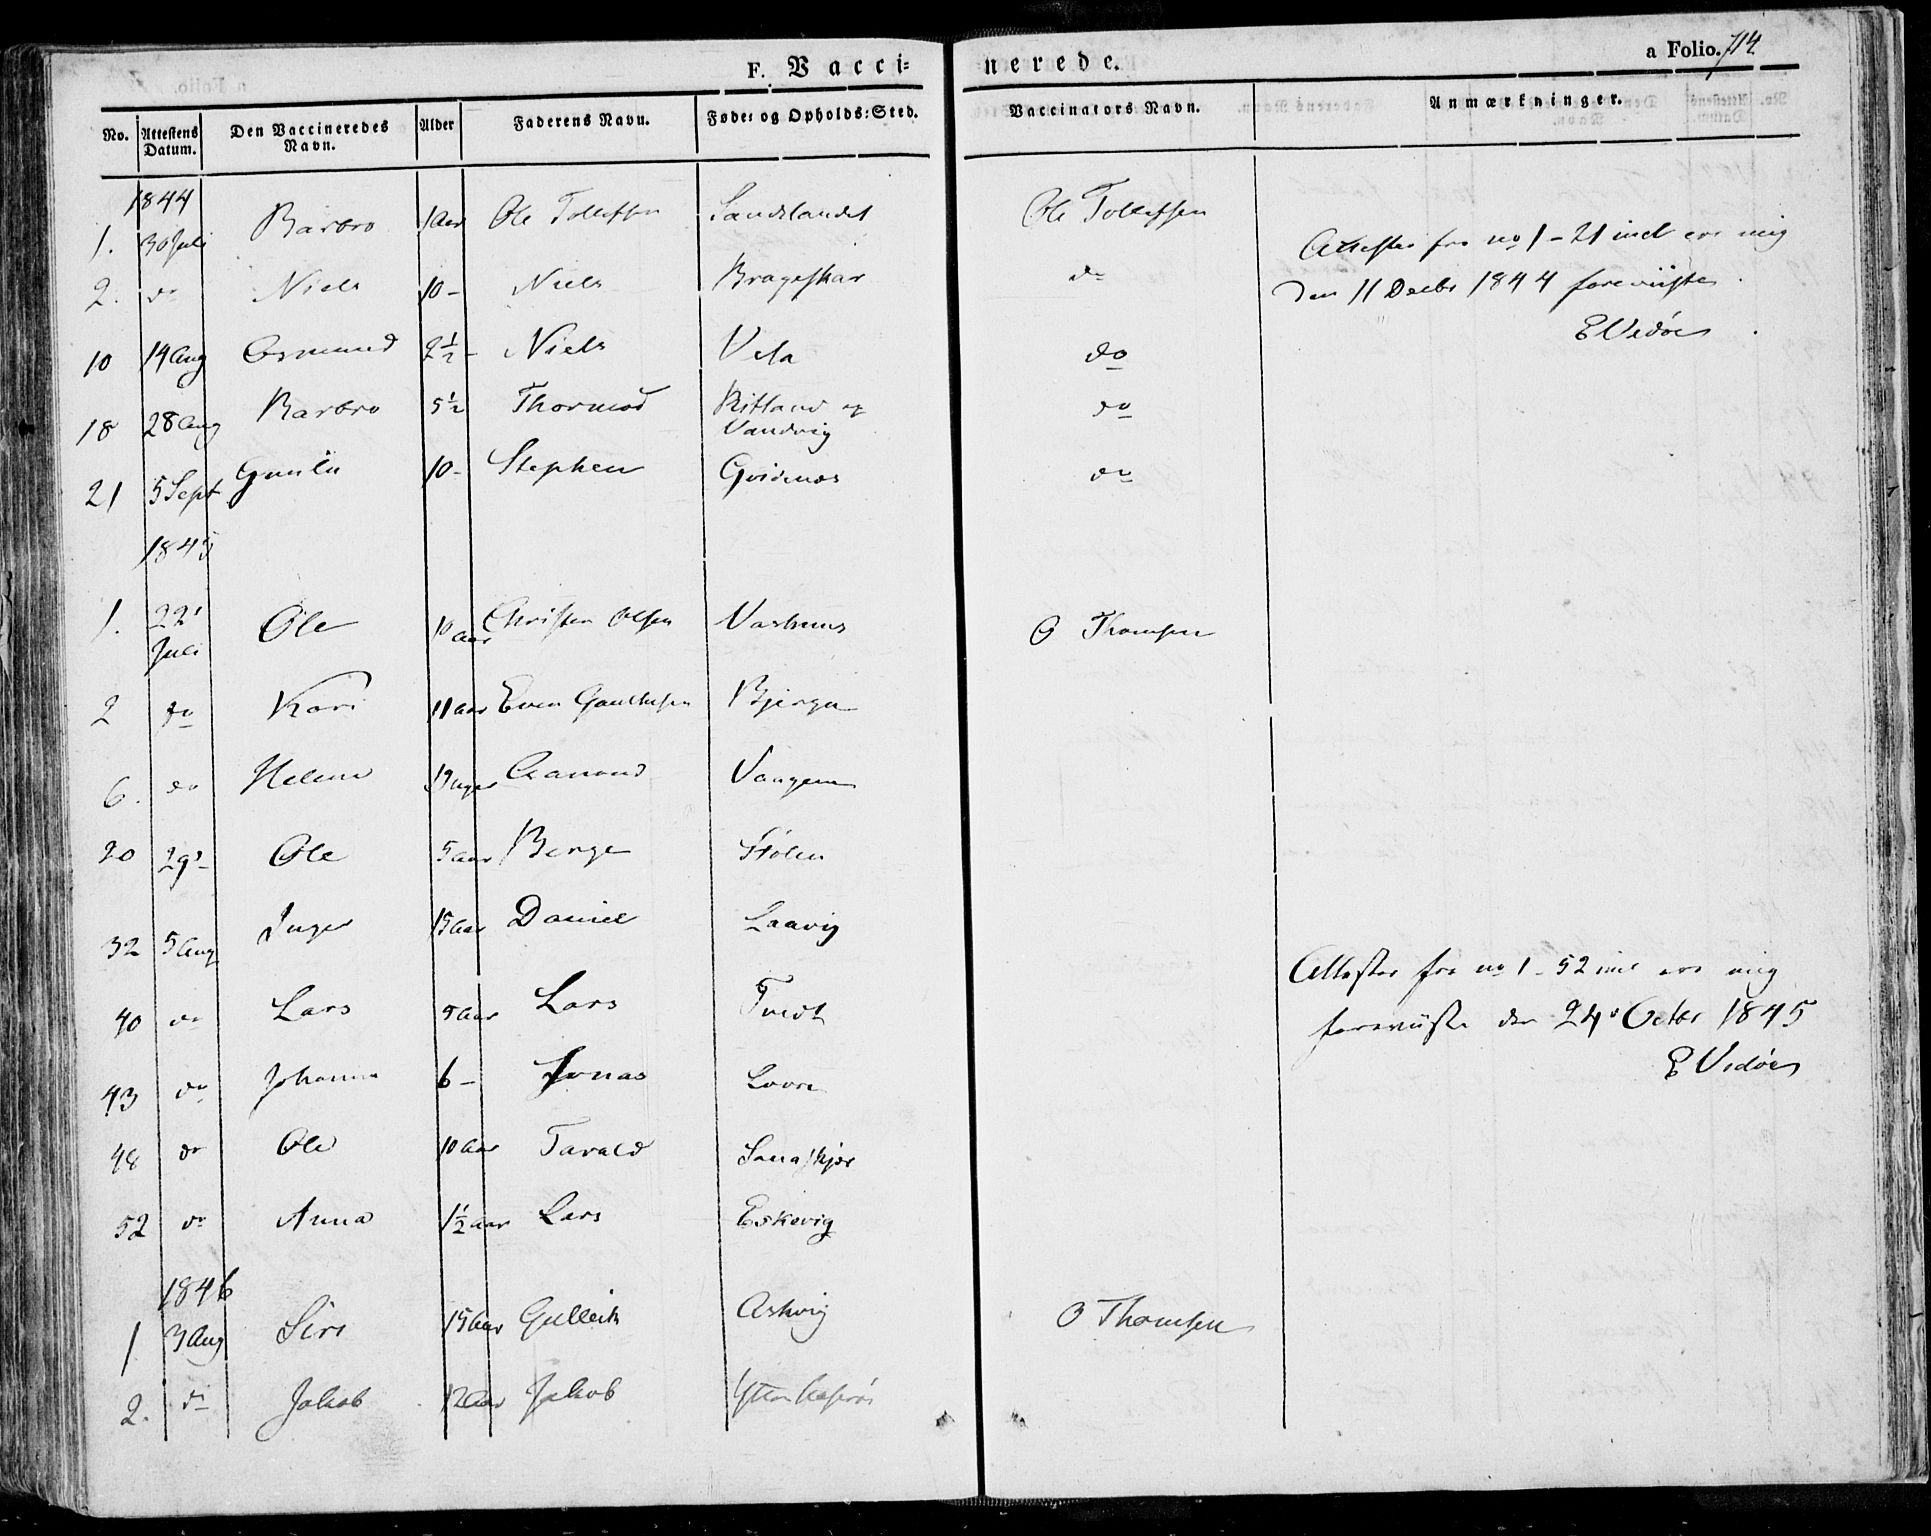 F. Vacci=
nerede.
a Folio. 714
No. Attestens Datum. Den Vaccineredes Navn. Alder Faderens Navn. Føde: og Opholds:Sted. Vaccinators Navn. Anmærkninger.
1844
1. 30 Juli Barbro 1 Aar Ole Tollefsen Sandslandet Ole Tollefsen
2. do Niels 10 - Niels Brageskar do
10 14 Aug Osmund 2½ - Niels Vela do
18 28 Aug Barbro 5½ Thormod Ritland og Vandvig do
21 5 Sept 10 - Stephen do
Attester fra no 1 - 21 incl ere mig
den 11 Decbr 1844 foreviiste.
E Vidøe
1845
1. 22 Juli Ole 10 aar Christen Olsen Vashuus O Thomsen
2 do Kari 11 aar Even Bjerge
6. do Helene Vaagen
20 29 Ole 5 aar Berge Stølen
32 5 Aug Inger 15 aar Daniel Laavig
40 do Lars 5 aar Lars Tvedt
43 do Johanna 6 - Jonas Lovra
48 do Ole 10 aar Tarald
52 do Anna 1½ aar Lars Eskevig
Attester fra no 1 - 52 incl ere mig
foreviiste den 24 Octbr 1845
E Vidøe
1846
1 3 Aug Siri 15 aar Gullich Askvig O Thomsen
2. do Jakob 12 aar Jakob